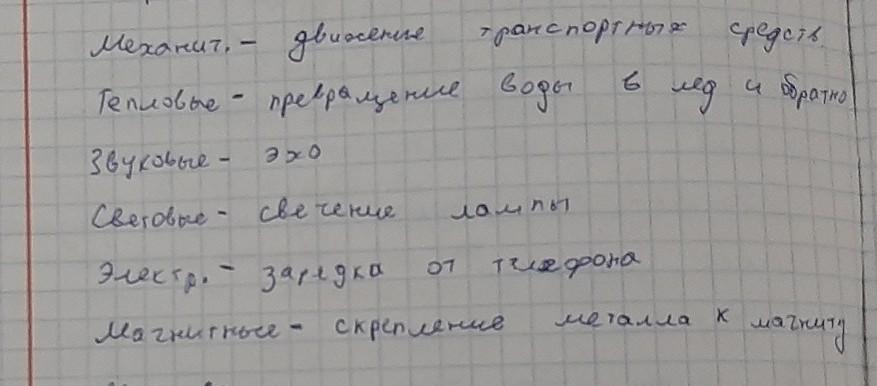 Механич. - движение транспортных средств
Тепловые - превращение воды в лед и обратно
Звуковые - эхо
Световые - свечение лампы
Электр. - зарядка от телефона
Магнитные - скрепление металла к магниту